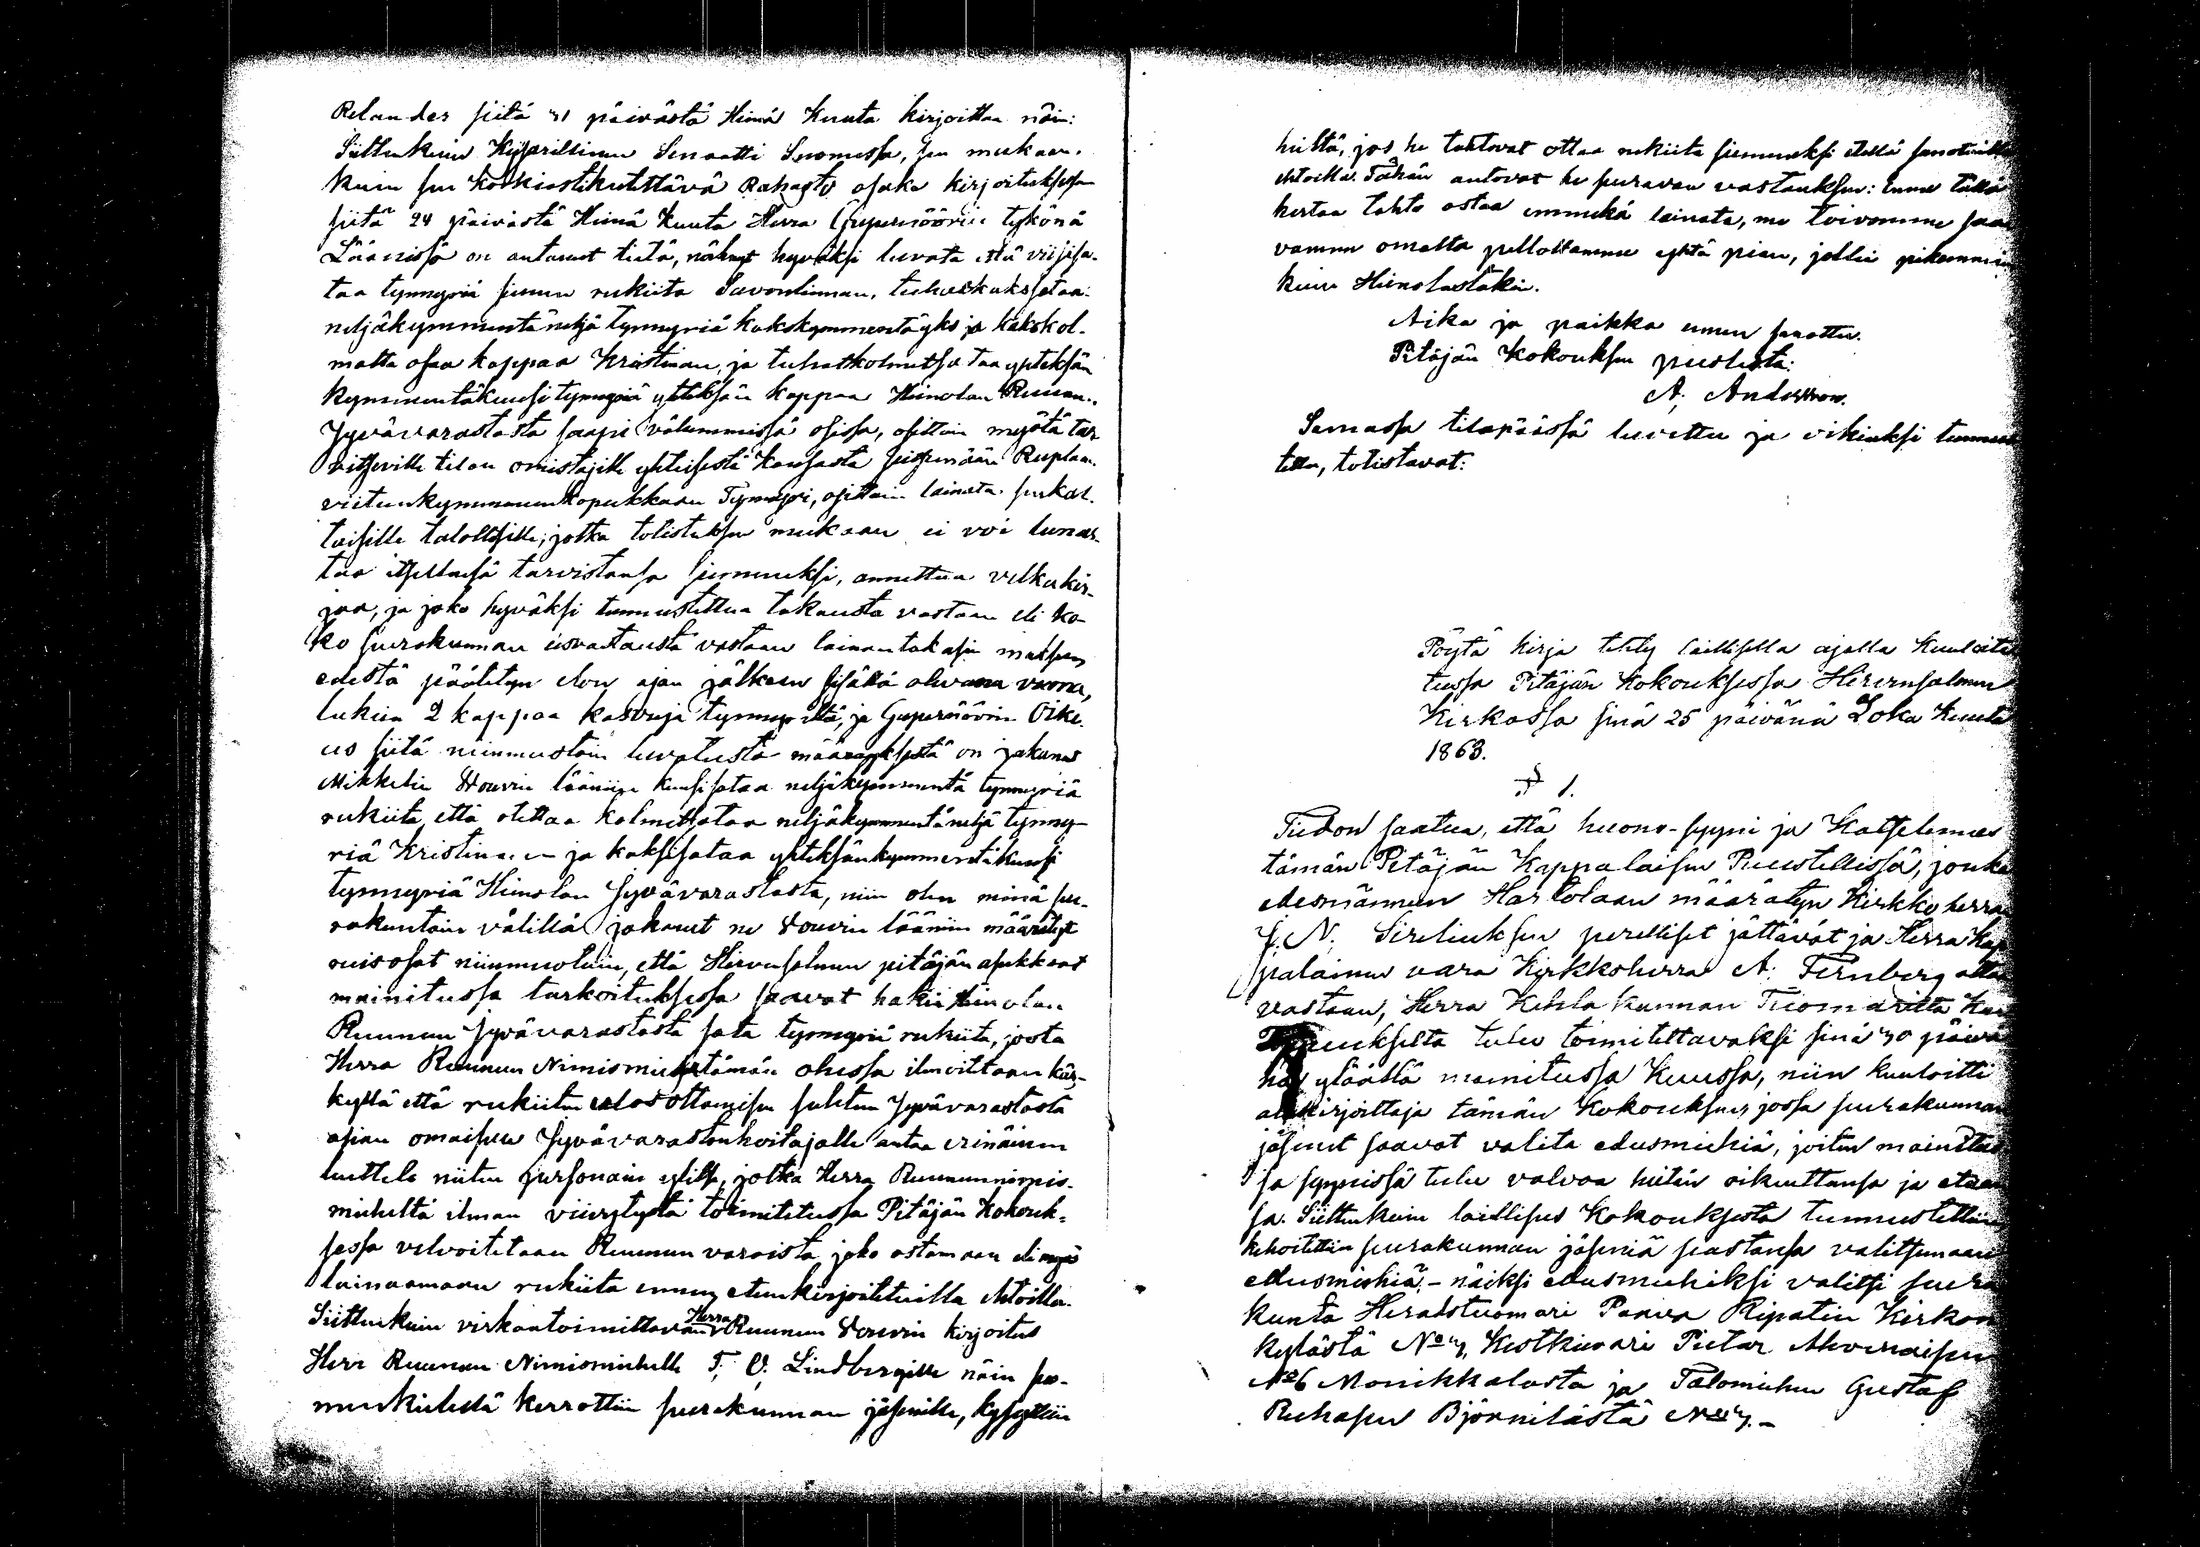 Relander siitä 31 päivästä Heinä Kuuta kirjoittaa näin:
Siittenkuin Keisarillinen Senaatti Suomessa, sen mukaan.
kuin sen korkiastikutettävä Rahasto osaka kirjoituksessa
siitä 24 päivästä Heinä Kuuta Herra Gupernöörin tykönä
Läänissä on antanut tietä, nähnyt hyväksi luvata että viisisa-
taa tynnyriä siemen rukiita Savonlinnan, tuhatkaksisataa-
neljäkymmentäneljä tynnyriä kakskymmentäyks ja kakskol-
matta osaa kappaa Kristinan, ja tuhatkolmesataa yheksän
kymmentäkuusi tynnyriä yheksän kappaa Heinolan Ruunun..
Jyvävarastosta saapi vähemmissä osissa, osittain myötä tar
vitseville tilan omistajille yhteisestä Kansasta seitsemään Ruplaan.
viitenkymmenenkopekkaan Tynnyri, osittain lainata senkal-
taisille talollisille, jotka tolistuksen mukaan ei voi lunas-
taa itsellensä tarvistansa siemeneksi, annettua velkakir-
jaa, ja joko hyväksi tunnustettua takausta vastaan eli ko-
ko seurakunnan isvastausta vastaan lainan takasin maksun
edestä päätetyn elon ajan jälkeen sisällä olevana vuona,
lukein 2 kappaa kasvuja tynnyriltä, ja Gupernöörin Oike-
us siitä niinmuotoin luvatusta määräyksestä on jakanut
Mikkelin Vouvin lääniin kuusisataa neljäkymmentä tynnyriä
rukiita, että otettaa kolmesataa neljäkymmentäneljä tynny-
riä Kristinasen ja kaksisataa yheksänkymmentäkuusi
tynnyriä Heinolan Jyvävarastosta, niin olen minä seu-
rakuntain välillä jakanut ne Vouvin läänin määrätyt
ruisosat niinmuotoin, että Hirvensalmen pitäjän asukkaat
mainitussa tarkoituksessa saavat hakia Heinolan
Ruunun Jyvävarastosta sata tynnyriä rukiita, josta
Herra Ruunun Nimismies tämän ohessa ilmoitetaan käs-
kyllä että rukiitten ulosottamisen suhten Jyvävarastosta
asian omaisen Jyvävarastonhoitajalle antaa erinäinen
luettelo niitten persoonain ylitse, jotka Herra Ruununnimis-
mieheltä ilman viivytystä toimitetussa Pitäjän Kokouk-
sessa velvoitetaan Ruunun varoista joko ostamaan eli myös
lainaamaan rukiita ennen etenkirjoitetuilla ehtoilla.
Siittenkuin virkaatoimittavan Herra Ruunun Vouvin kirjoitus
Herr Ruunun Nimismiehelle T. V. Lindbergille näin suo-
menkielellä kerrottiin seurakunnan jäsenille, kysyttiin
heiltä, jos he tahtovat ottaa rukiita siemeneksi edellä sanotuilla
ehtoilla. Tähän antovat he seuravan vastauksen: Emme tällä
kertaa tahto ostaa emmekä lainata, me toivomme saa
vamme omalta pelloltamme yhtä pian, jollei pikemmin
kuin Heinolastakin.
Aika ja paikka ennen sanottu.
Pitäjän Kokouksen puolesta:
A. Andersson.
Samassa tilapäässä luvettu ja oikiaksi tunnus
tettu, totistavat:
Pöytä kirja tehty laillisella ajalla Kuuloite
tussa Pitäjän Kokouksessa Hirvensalmen
Kirkossa sinä 25 päivänä Loka Kuuta
1863.
§ 1.
Tiedon saatua, että huone-syyni ja Katselemus
tämän Pitäjän Kappalaisen Puustellissa, jonka
edesmännen Hartolaan määrätyn Kirkkoherra
J. N. Sireliuksen perilliset jättävät ja Herra Kap
palainen vara Kirkkoherra A. Fernberg ottaa
vastaan, Herra Kihlakunnan Tuomarilta
tulee toimitettavaksi sinä 30 päivä
nä ylläällä mainitussa Kuussa, niin kuuloitti
allekirjoittaja tämän Kokouksen, jossa seurakunnan
jäsenet saavat valita edusmiehiä, joiten mainitus
sa syynissä tulee valvoa heitän oikeuttansa ja etuan
sa. Siittenkuin laillisus Kokouksesta tunnustettiin
kehoitettiin seurakunnan jäseniä seastansa valitsemaan
edusmiehiä, - näiksi edusmiehiksi valitsi seura
kunta Herastuomari Paava Ripatin Kirkon
kylästä No 4, Kestkievari Pietar Ahvenaisen
No 6 Monikkalasta ja Talomiehen Gustaf
Ruhasen Björnilästä No 4. -